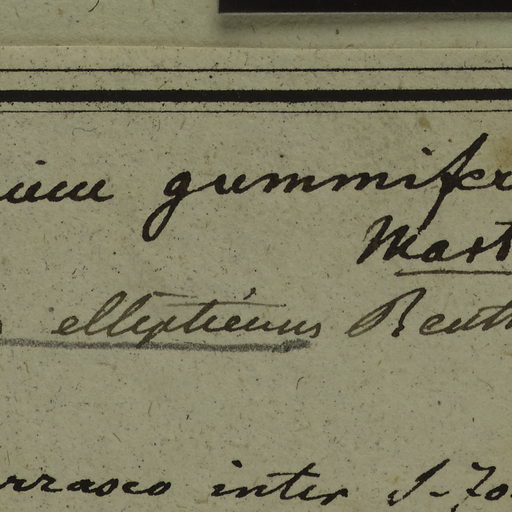 ium gummifer
Mart
ellipticus Benth
rrasco inter S-Jo